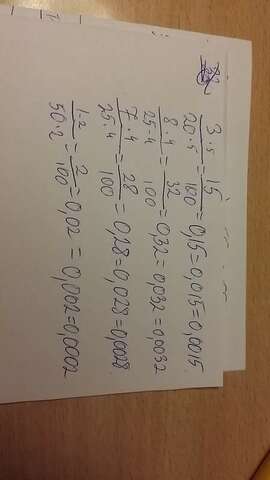 3·5/20·5 = 15/100 = 0,15 = 0,015 = 0,0015.
8·4/25·4 = 32/100 = 0,32 = 0,032 = 0,0032
7·4/25·4 = 28/100 = 0,28 = 0,028 = 0,0028
1·2/50·2 = 2/100 = 0,02 = 0,002 = 0,0002